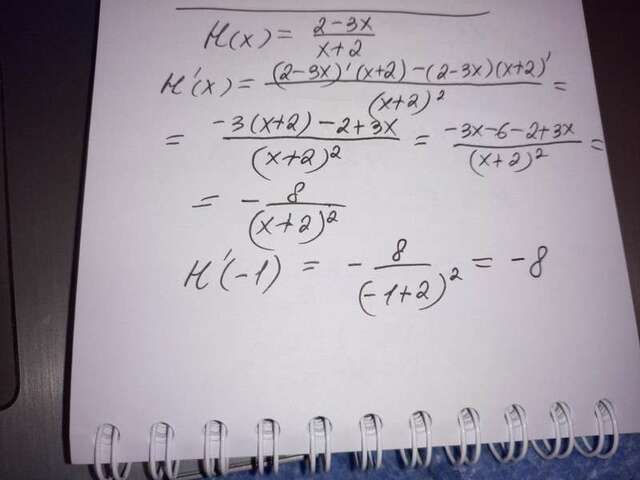 H(x) = (2-3x)/(x+2)
H'(x) = ((2-3x)'(x+2)-(2-3x)(x+2)')/(x+2)² =
= (-3(x+2)-2+3x)/(x+2)² = (-3x-6-2+3x)/(x+2)² =
= - 8/(x+2)²
H'(-1) = - 8/(-1+2)² = -8